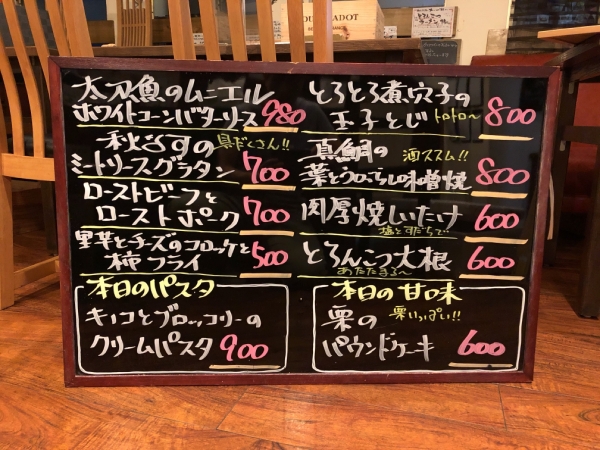 太刀魚のムニエル
ホワイトコーンバターソース 980
秋なすの 具だくさん!!
ミートソースグラタン 700
ローストビーフと
ローストポーク 700
里芋とチーズのコロッケと
柿フライ 500
本日のパスタ
キノコとブロッコリーの
クリームパスタ 900
とろとろ煮穴子の
玉子とじ トロトロ〜 800
真鯛の 酒ススム!!
味噌焼 800
肉厚焼しいたけ 600
塩とすだちで
とろんこつ大根 600
あたたまる〜
本日の甘味
栗の 栗いっぱい!!
パウンドケーキ 600